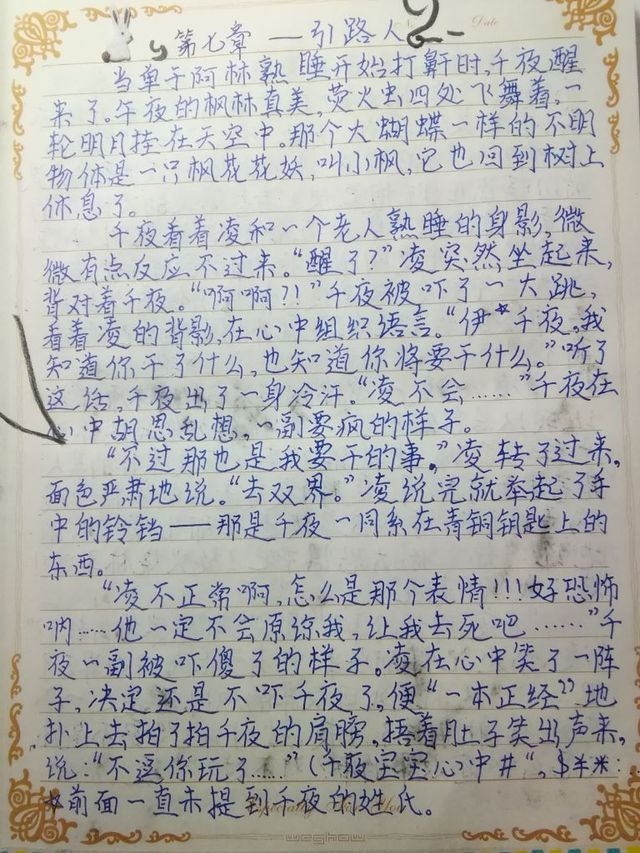 第七章 — 引路人 2
Date
当单于阿林熟睡开始打鼾时,千夜醒
来了。午夜的枫林真美,荧火虫四处飞舞着,一
轮明月挂在天空中。那个大蝴蝶一样的不明
物体是一只枫花花妖,叫小枫,它也回到树上
休息了。
千夜看着凌和一个老人熟睡的身影,微
微有点反应不过来。“醒了?”凌突然坐起来,
背对着千夜。“啊啊?!”千夜被吓了一大跳,
看着凌的背影,在心中组织语言。“伊*千夜。我
知道你干了什么,也知道你将要干什么。”听了
这话,千夜出了一身冷汗。“凌不会……”千夜在
心中胡思乱想,一副要疯的样子。
“不过那也是我要干的事。”凌转了过来。
面色严肃地说。“去双界。”凌说完就举起了手
中的铃铛——那是千夜一同系在青铜钥匙上的
东西。
“凌不正常啊,怎么是那个表情!!!好恐怖
呐……他一定不会原谅我,让我去死吧……”千
夜一副被吓傻了的样子。凌在心中笑了一阵
子,决定还是不吓千夜了,便“一本正经”地
扑上去拍了拍千夜的肩膀,捂着肚子笑出声来,
说:“不逗你玩了……”(千夜宝宝心中#“,$羊米:
*前面一直未提到千夜的姓氏。